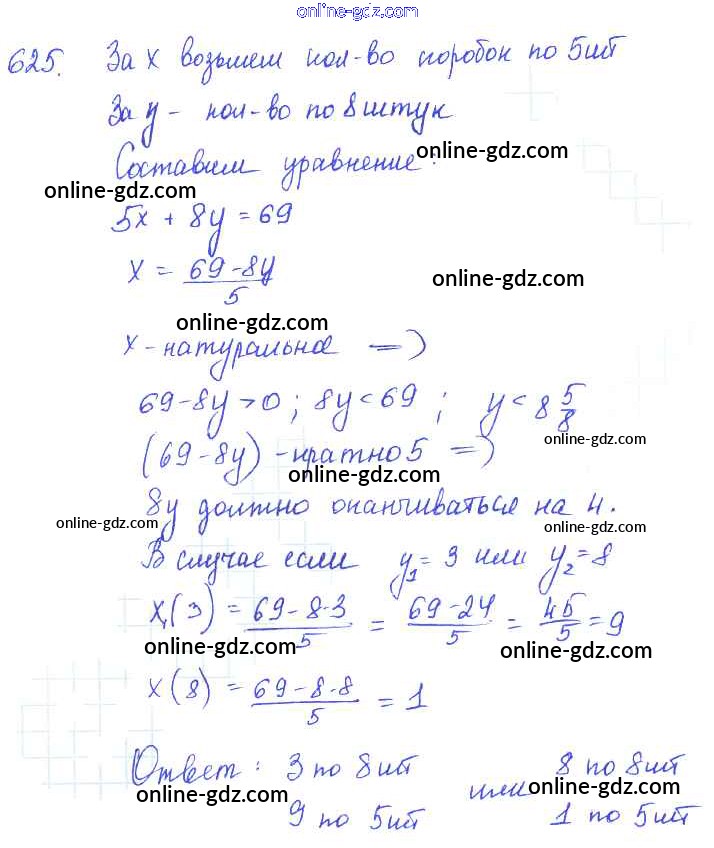 online-gdz.com
625. За х возьмем кол-во коробок по 5шт
За у - кол-во по 8 штук
online-gdz.com
Составим уравнение:
online-gdz.com
5x + 8y = 69
x = (69-8y)/5
online-gdz.com
online-gdz.com
x - натуральное =>
69-8y>0; 8y<69; y<8 5/8
online-gdz.com
(69-8y) - кратно 5 =>
8y должно оканчиваться на 4.
online-gdz.com online-gdz.com
В случае если y₁=3 или y₂=8
x₁(3) = (69-8·3)/5 = (69-24)/5 = 45/5 = 9
online-gdz.com online-gdz.com
x(8) = (69-8·8)/5 = 1
Ответ: 3 по 8шт или 8 по 8шт
online-gdz.com online-gdz.com
9 по 5шт 1 по 5шт